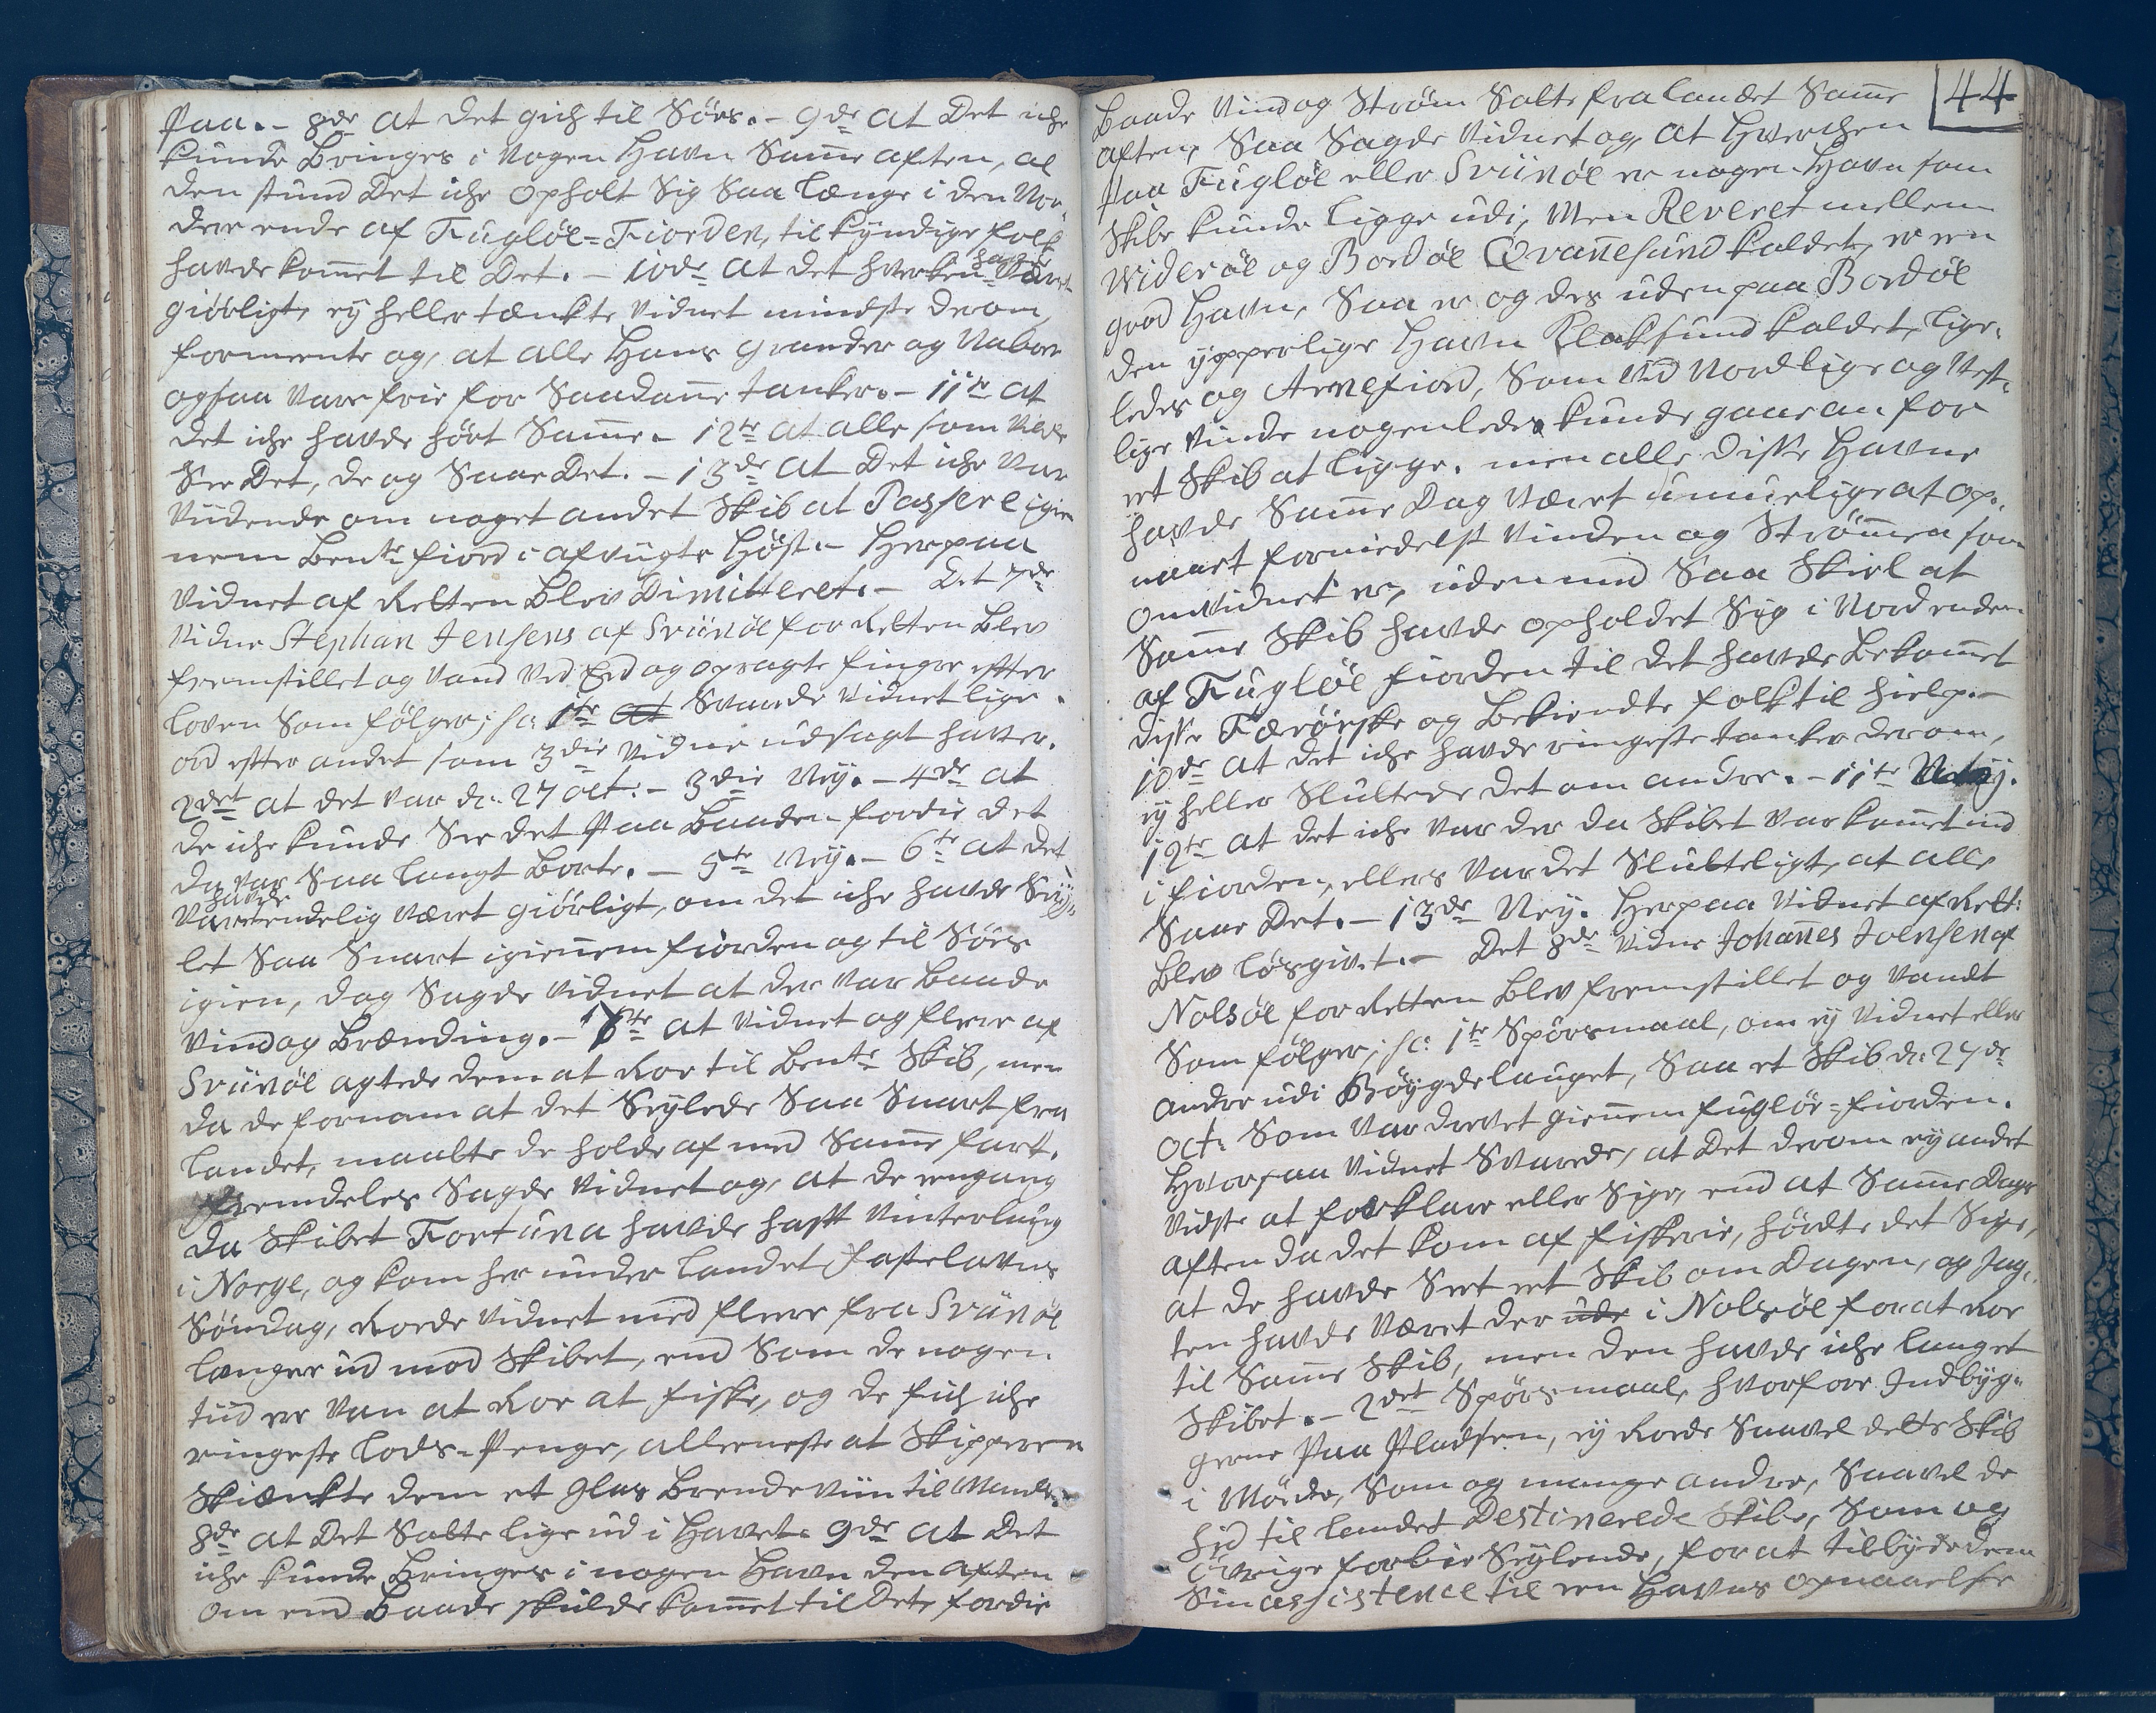 paa. – 8de at det gich til Søes. – 9de at Det iche
kunde Bringes i Nogen Havn Same aften, al
den stund Det iche opholt Sig Saa længe i den Nor-
dere ende af Fugløe-Fiorden, til kyndige folk
havde komet til Det. – 10de at det hverken havde Været
giørligt, ey heller tænkte Vidnet mindste derom,
formeente og, at alle Hans Grander og Naboer
ogsaa Vare frie for Saadane tanker. – 11te at
det iche havde hørt Same. – 12te at alle som Vilde
See Det, de og Saae Det. – 13de at Det iche Var
Viidende om noget andet Skib at Passere igien
nem Bente fiord i afvugte Høst. – Herpaa
Vidnet af Retten Blev Dimitteret. – Det 7de
Vidne Stephan Jensens af Svünøe for Retten Blev
fremstillet og Vand Ved Eed og opragte finger effter
Loven Som følger; sc: 1te at Svarede Vidnet lige
ord effter andet som 3die Vidne udsagt haver.
2det at det Var d: 27 oct: – 3die Ney. – 4de at
de iche kunde See det paa Baaden fordie det
da var Saa langt Borte. – 5te Ney. – 6te at det
havde endelig Været giørligt, om det iche havde Sey-
let Saa Snart igiennem fiorden og til Søes
igien, dog Sagde Vidnet at der Var Baade
Vind og Brænding. – 7te at Vidnet og fleere af
Svünøe agtede dem at Roe til Bente Skib, men
da de fornam at det Seylede Saa Snart fra
Landet, maatte de holde af med Same fart.
Fremdeles Sagde Vidnet og, at de engang
da Skibet Fortuna havde hafft Vinterlaug
i Norge, og kom her under Landet fastelavns
Søndag, Roede Vidnet med fleere fra Svünøe
længer ud mod Skibet, end Som de nogen
tiid ere Van at Roe at fiske, og de fich iche
ringeste Lods-Penge, alleeneste at Skipperen
Skiænkte dem et glas Brendeviin til Mands.
8de at Det Satte lige ud i Havet. 9de at Det
iche kunde Bringes i nogen Havn den aften
om end Baade skulde komet til Det, fordie
44
Baade Vind og Strøm Satte fra Landet Same
aften, Saa Sagde Vidnet og, at Hverchen
paa Fugløe eller Svünøe er nogen Havn som
Skibe kunde Ligge udi, Men Reveret mellem
Widerøe og Bordøe Qvanesund kaldet, er een
good Havn, Saa er og des uden paa Bordøe
den ypperlige Havn Klaksund kaldet, lige-
ledes og Arnefiord, Som Ved Nordlige og Vest-
lige Vinde nogenledes kunde gaae an for
et Skib at ligge. men alle disse Havne
havde Same Dag Været umuelige at op-
naaet formedelst Vinden og Strømen som
omvidnet er, uden med Saa Skiel at
Same Skib havde opholdet Sig i Nordenden
af Fugløe fiorden til det havde Bekomet
disse Færøeske og Bekiendte folk til hielp. –
10de at det iche havde ringeste tanker derom,
ey heller Sluttede det om andre. – 11te Ney.
12te at det iche Var der da Skibet Var komet ind
i fiorden, ellers Var det Slutteligt, at alle
Saae Det. – 13de Ney. Herpaa Vidnet af Rett:
Blev løsgivet. – Det 8de Vidne Johanes Joensen af
Nolsøe for Retten Blev fremstillet og Vandt
Som følger; sc: 1te Spørsmaal, om ey Vidnet eller
andre udi Bøygdelauget, Saae et Skib d: 27de
oct: Som Var drevet giennem fugløe-fiorden.
Hvorpaa Vidnet Svarede, at Det derom ey andet
Vidste at forklare eller Sige, end at Same Dags
aften da det kom af fiskerie, hørdte det Sige,
at de havde Seet et Skib om Dagen, og Jag-
ten havde Været der ude i Nolsøe for at Roe
til Same Skib, men den havde iche langet
Skibet. – 2det Spørsmaal, hvorfore Indbyg-
gerne paa Pladsen, ey Roede Saavel dette Skib
i Møde, Som og mange andre, Saavel de
hid til Landet Destinerede Skibe, Som og
øvrige forbie Seylende, for at tilbyde dem
Sin assistence til een Havns opnaaelse